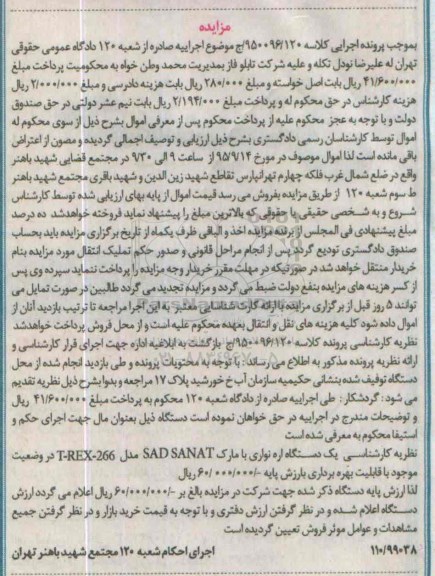 مزایده
بموجب پرونده اجرایی کلاسه 950096/120/ج موضوع اجراییه صادره از شعبه 120 دادگاه عمومی حقوقی
تهران له علیرضا نودل تکله و علیه شرکت تابلو فاز بمدیریت محمد وطن خواه به محکومیت پرداخت مبلغ
41/600/000 ریال بابت اصل خواسته و مبلغ 280/000 ریال بابت هزینه دادرسی و مبلغ 2/000/000 ریال
هزینه کارشناس در حق محکوم له و پرداخت مبلغ 2/194/000 ریال بابت نیم عشر دولتی در حق صندوق
دولت و با توجه به عجز محکوم علیه از پرداخت محکوم پس از معرفی اموال بشرح ذیل از سوی محکوم له
اموال توسط کارشناسان رسمی دادگستری بشرح ذیل ارزیابی و توصیف اجمالی گردیده و مصون از اعتراض
باقی مانده است لذا اموال موصوف در مورخ 95/9/14 از ساعت 9 الی 9/30 در مجتمع قضایی شهید باهنر
واقع در ضلع شمال غرب فلکه چهارم تهرانپارس تقاطع شهید زین الدین و شهید باقری مجتمع شهید باهنر
ط سوم شعبه 120 از طریق مزایده بفروش می رسد قیمت اموال از پایه بهای ارزیابی شده توسط کارشناس
شروع و به شخصی حقیقی یا حقوقی که بالاترین مبلغ را پیشنهاد نماید فروخته خواهدشد ده درصد
مبلغ پیشنهادی فی المجلس از برنده مزایده اخذ و الباقی ظرف یکماه از تاریخ برگزاری مزایده باید بحساب
صندوق دادگستری تودیع گردد پس از انجام مراحل قانونی و صدور حکم تملیک انتقال مورد مزایده بنام
خریدار منتقل خواهد شد در صورتیکه در مهلت مقرر خریدار وجه مزایده را پرداخت ننماید سپرده وی پس
از کسر هزینه های مزایده بنفع دولت ضبط می گردد و مزایده تجدید می گردد طالبین در صورت تمایل می
توانند 5 روز قبل از برگزاری مزایده با ارائه کارت شناسایی معتبر به این اجرا مراجعه تا ترتیب بازدید آنان از
اموال داده شود کلیه هزینه های نقل و انتقال بعهده محکوم علیه است و از محل فروش پرداخت خواهدشد
نظریه کارشناسی پرونده کلاسه 950096/120/ج بازگشت به ابلاغیه اداره جهت اجرای قرار کارشناسی و
ارائه نظریه پرونده مذکور به اطلاع می رساند: با توجه به محتویات پرونده و طی بازدید انجام شده از محل
دستگاه توقیف شده بنشانی حکیمیه سازمان آب خ خورشید پلاک 17 مراجعه و بدوا بشرح ذیل نظریه تقدیم
می شود: گردشکار: طی اجراییه صادره از دادگاه شعبه 120 محکوم به پرداخت مبلغ 41/600/000 ریال
و توضیحات مندرج در اجراییه در حق خواهان نموده است دستگاه ذیل بعنوان مال جهت اجرای حکم و
استیفا محکوم به معرفی شده است
نظریه کارشناسی یک دستگاه اره نواری با مارک SAD SANAT مدل T-REX-266 در وضعیت
موجود با قابلیت بهره برداری بارزش پایه -/60/000/000 ریال
لذا ارزش پایه دستگاه ذکر شده جهت شرکت در مزایده بالغ بر -/60/000/000 ریال اعلام می گردد ارزش
دستگاه اعلام شده و در نظر گرفتن ارزش دفتری و با توجه به قیمت خرید بازار و در نظر گرفتن جمیع
مشاهدات و عوامل موثر فروش تعیین گردیده است
110/99038 اجرای احکام شعبه 120 مجتمع شهید باهنر تهران